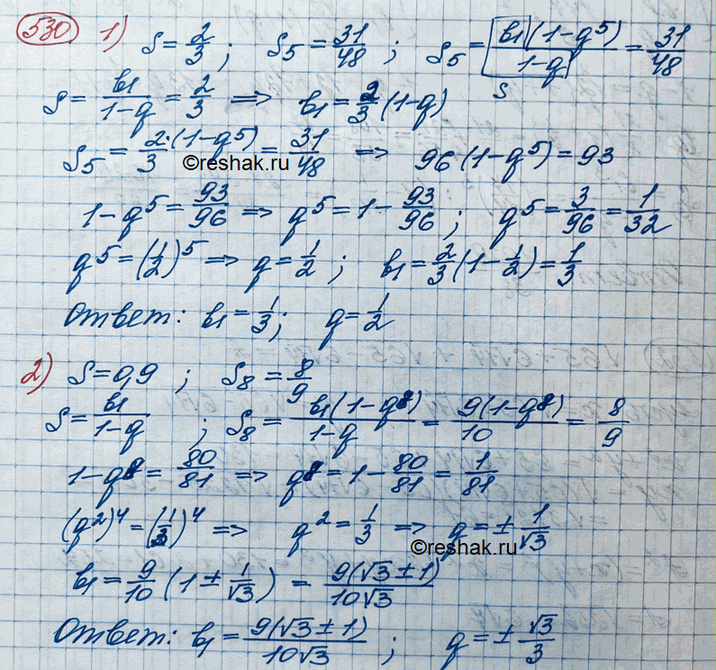 530 1) S = 2/3 ; S5 = 31/48 ; S5 = b1(1-q^5)/(1-q) = 31/48
S
S = b1/(1-q) = 2/3 ⟹ b1 = 2/3 (1-q)
S5 = 2·(1-q^5)/3 = 31/48 ⟹ 96(1-q^5) = 93
©reshak.ru
1-q^5 = 93/96 ⟹ q^5 = 1 - 93/96 ; q^5 = 3/96 = 1/32
q^5 = (1/2)^5 ⟹ q = 1/2 ; b1 = 2/3 (1 - 1/2) = 1/3
Ответ: b1 = 1/3 ; q = 1/2
2) S = 0,9 ; S8 = 8/9
S = b1/(1-q) ; S8 = b1(1-q^8)/(1-q) = 9(1-q^8)/10 = 8/9
1-q^8 = 80/81 ⟹ q^8 = 1 - 80/81 = 1/81
(q^2)^4 = (1/3)^4 ⟹ q^2 = 1/3 ⟹ q = ± 1/√3
©reshak.ru
b1 = 9/10 (1 ± 1/√3) = 9(√3 ± 1)/(10√3)
Ответ: b1 = 9(√3 ± 1)/(10√3) ; q = ± √3/3